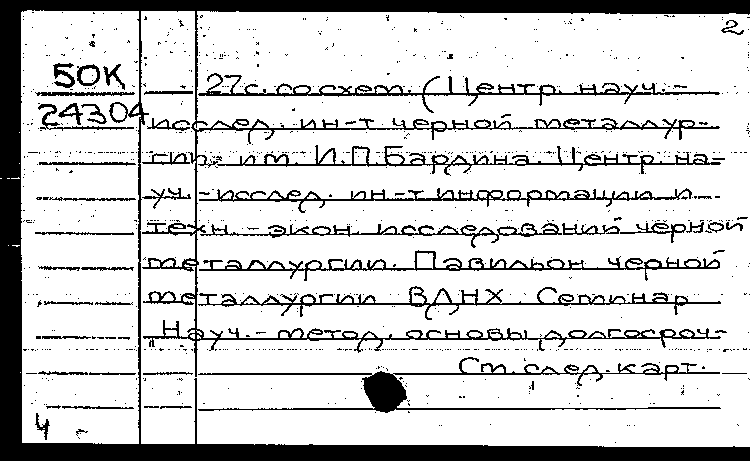 2
50К
24304
27с. со схем. (Центр. науч.-
исслед. ин-т черной металлур-
гии им. И.П.Бардина. Центр. на-
уч.-исслед. ин-т информации и
техн.-экон. исследований черной
металлургии. Павильон черной
металлургии ВДНХ. Семинар
"Науч.-метод. основы долгосроч-
См. след. карт.
4